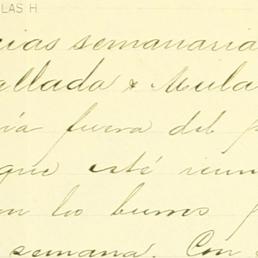 LAS H.
cias semanaria
allada & Mula
ía fuera del p
que esté reun
en los burros
semana. Con